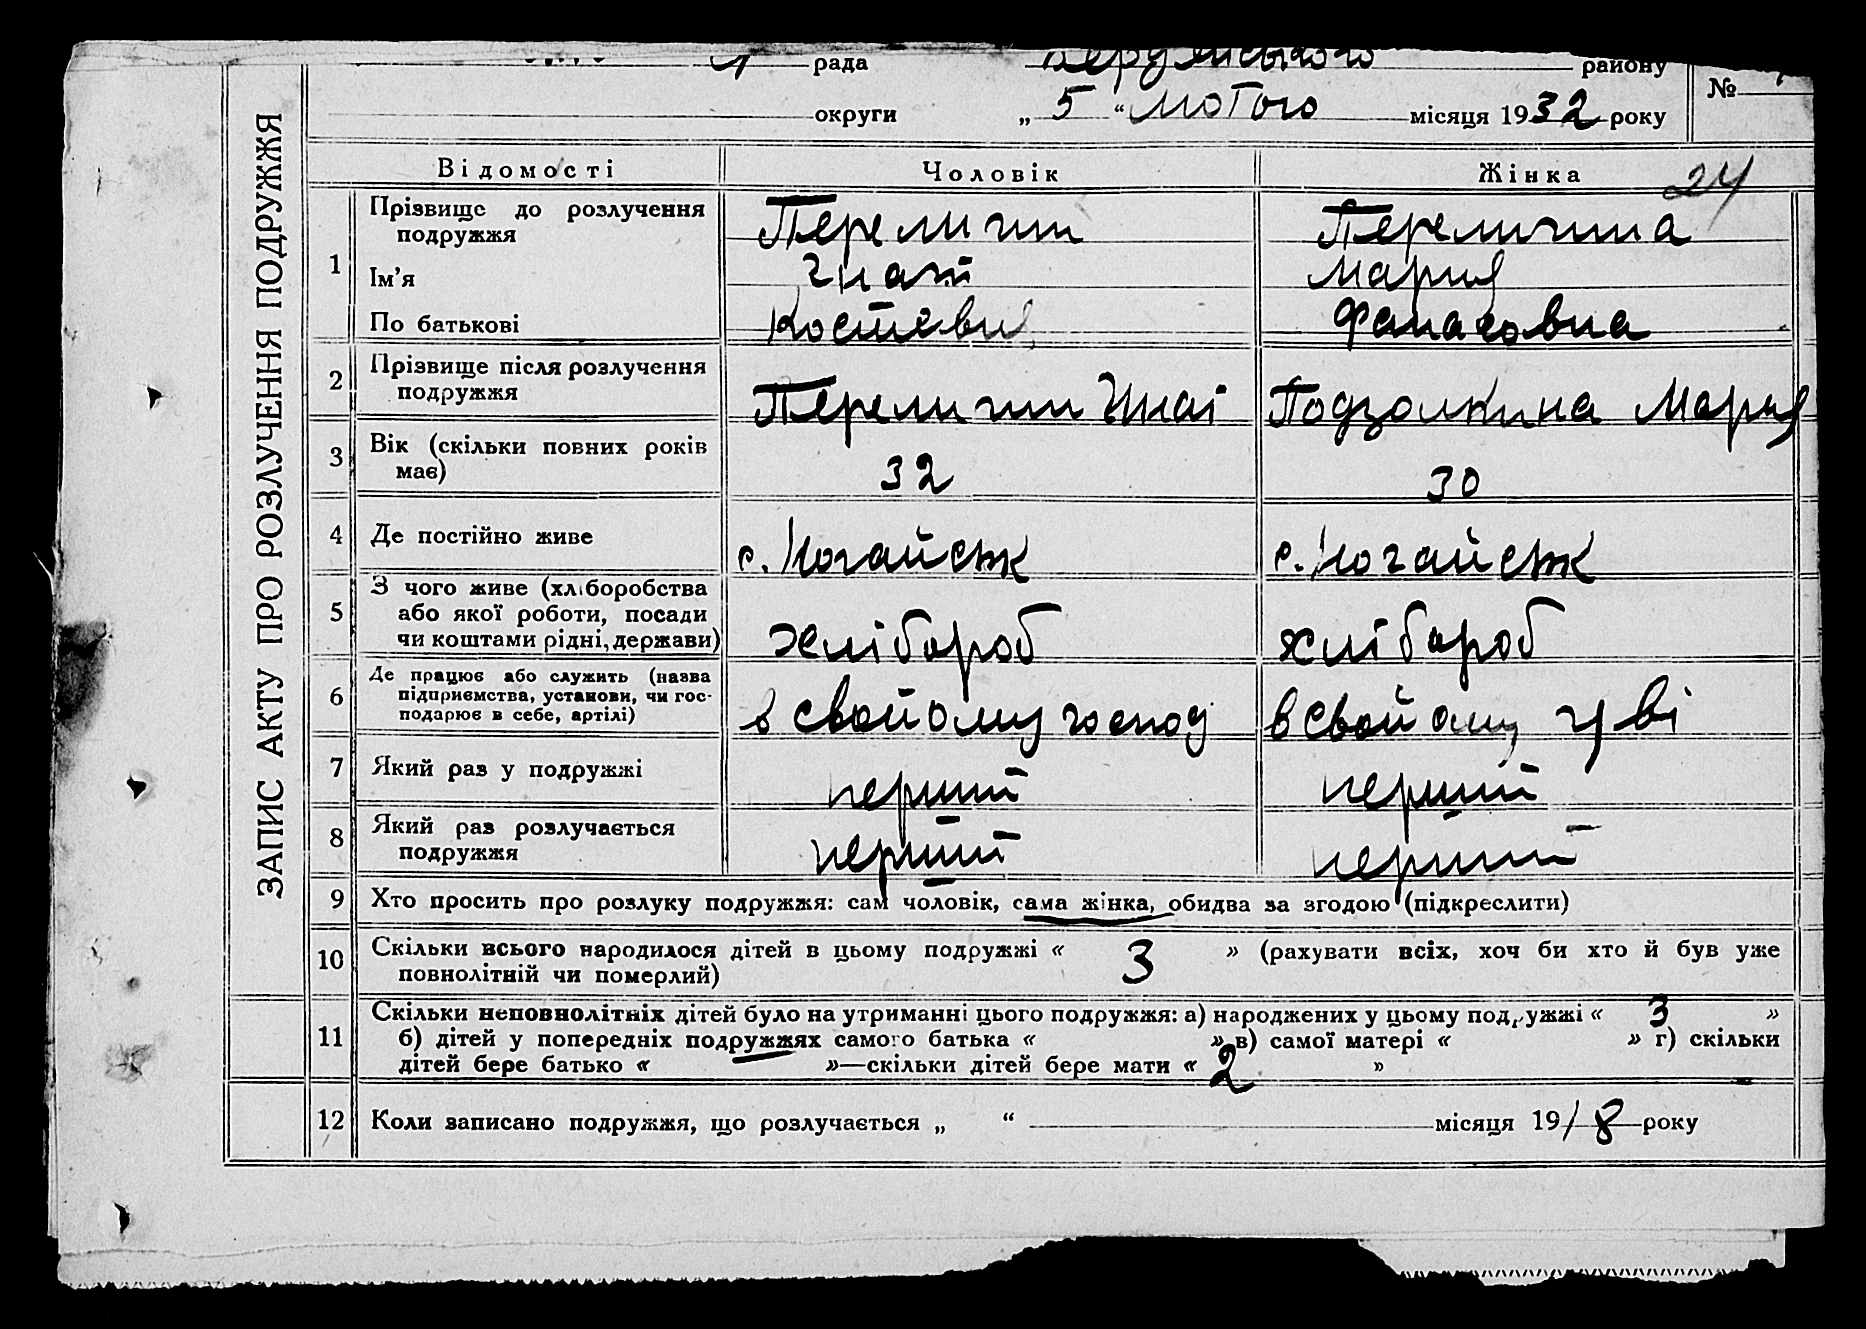 рада району №
округи „ 5 “ лютого місяця 1932 року
ЗАПИС АКТУ ПРО РОЗЛУЧЕННЯ ПОДРУЖЖЯ
Відомості Чоловік Жінка 24
1 Прізвище до розлучення подружжя
Перемичин Перемичина
Ім’я Гнат Мария
По батькові Костєвич Фанасовна
2 Прізвище після розлучення
подружжя Гнат Подзолкина Мария
3 Вік (скільки повних років
має) 32 30
4 Де постійно живе с. Ногайськ с. Ногайськ
5 З чого живе (хліборобства
або якої роботи, посади
чи коштами рідні, держави) хлібороб хлібороб
6 Де працює або служить (назва
підприємства, установи, чи гос-
подарює в себе, артілі) в свойому господ в свойому
7 Який раз у подружжі перший перший
8 Який раз розлучається
подружжя перший перший
9 Хто просить про розлуку подружжя: сам чоловік, сама жінка, обидва за згодою (підкреслити)
10 Скільки всього народилося дітей в цьому подружжі « 3 » (рахувати всіх, хоч би хто й був уже
повнолітній чи померлий)
11 Скільки неповнолітніх дітей було на утриманні цього подружжя: а) народжених у цьому подружжі « 3 »
б) дітей у попередніх подружжях самого батька « » в) самої матері « » г) скільки
дітей бере батько « »—скільки дітей бере мати « 2 »
12 Коли записано подружжя, що розлучається „ “ місяця 1918 року